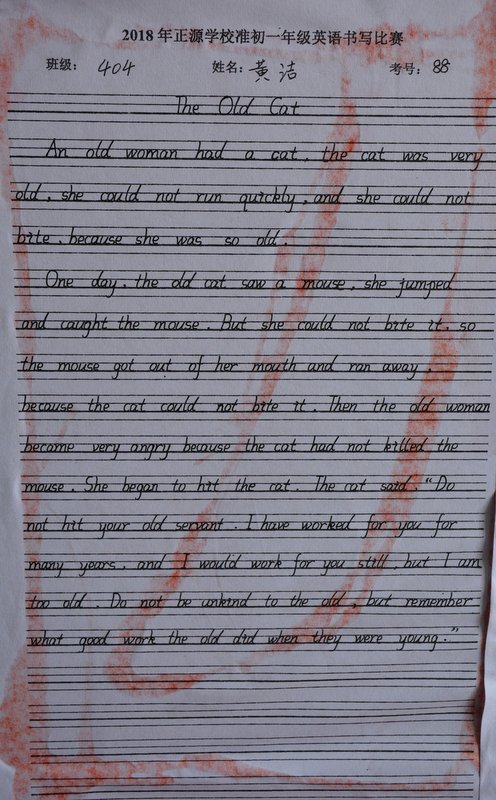 2018年正源学校准初一年级英语书写比赛
班级: 404 姓名: 黄洁 考号: 88
The Old Cat
An old woman had a cat. the cat was very
old, she could not run quickly, and she could not
bite. because she was so old.
One day. the old cat saw a mouse. she jumped
and caught the mouse. But she could not bite it. so
the mouse got out of her mouth and ran away.
because the cat could not bite it. Then the old woman
became very angry because the cat had not killed the
mouse. She began to hit the cat. The cat said. "Do
not hit your old servant. I have worked for you for
many years. and I would work for you still, but I am
too old. Do not be unkind to the old, but remember
what good work the old did when they were young."